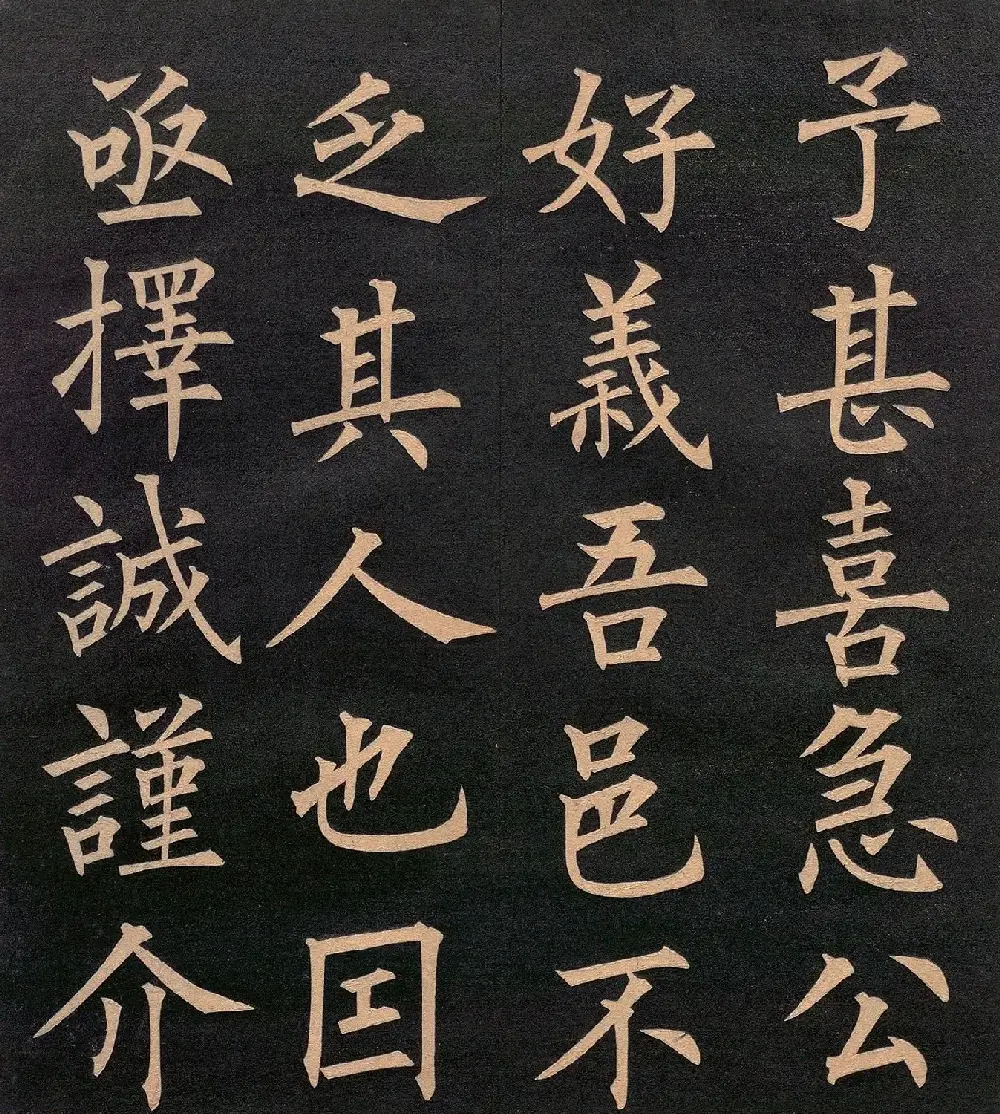 予甚喜急公
好義吾邑不
乏其人也囙
亟擇誠謹介